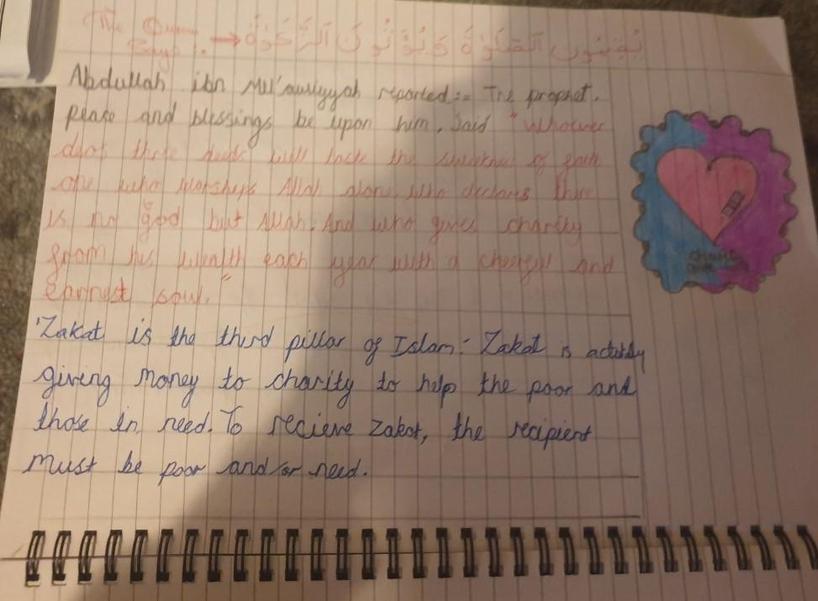 The Quran
Says :- → يُقِيمُونَ ٱلصَّلَوٰةَ وَيُؤْتُونَ ٱلزَّكَوٰةَ
Abdullah ibn Mu'awiyyah reported:- The prophet,
peace and blessings be upon him, said "Whoever
does these deeds will taste the sweetness of faith
one who worships Allah alone, who declares there
is no god but Allah. And who gives charity
from his wealth each year with a cheerful and
earnest soul."
'Zakat is the third pillar of Islam: Zakat is actually
giving money to charity to help the poor and
those in need. To recieve Zakat, the recipient
must be poor and/or need.